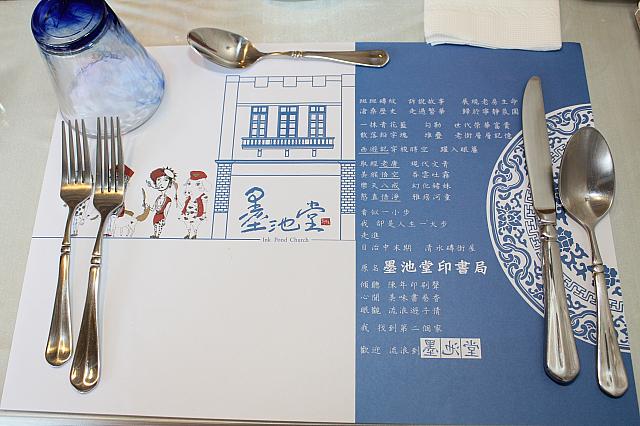 墨池堂
Ink Pond Church
斑斑磚紋 訴說故事 展現老房生命
滄桑歷史 走過繁華 歸於寧靜氛圍
一抹青花藍 勾勒 世代榮華富貴
散落鉛字塊 堆疊 老街層層記憶
西遊記穿梭時空 躍入眼簾
取經老唐 現代文青
美猴悟空 吞雲吐霧
樂天八戒 幻化豬妹
憨直悟淨 雅痞河童
看似一小步
我 卻是人生一大步
走進
日治中末期 清水磚街屋
原名 墨池堂印書局
傾聽 陳年印刷聲
心聞 美味書卷香
眼觀 流浪遊子情
我 找到第二個家
歡迎 流浪到 墨池堂